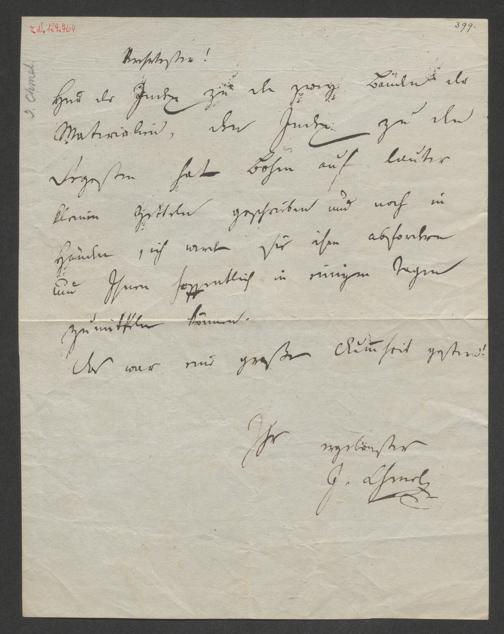 399.
J. Chmel
Verehrtester!
Hier der Index zu den zwey Bänden der
Materialien, den Index zu den
Regesten hat Böhm auf lauter
kleinen Zetteln geschrieben und noch in
Händen, ich werde sie ihm abfordern
und Ihnen hoffentlich in einigen Tagen
zumitteln können.
Das war eine große Dummheit gestern!
Ihr ergebenster
J. Chmel